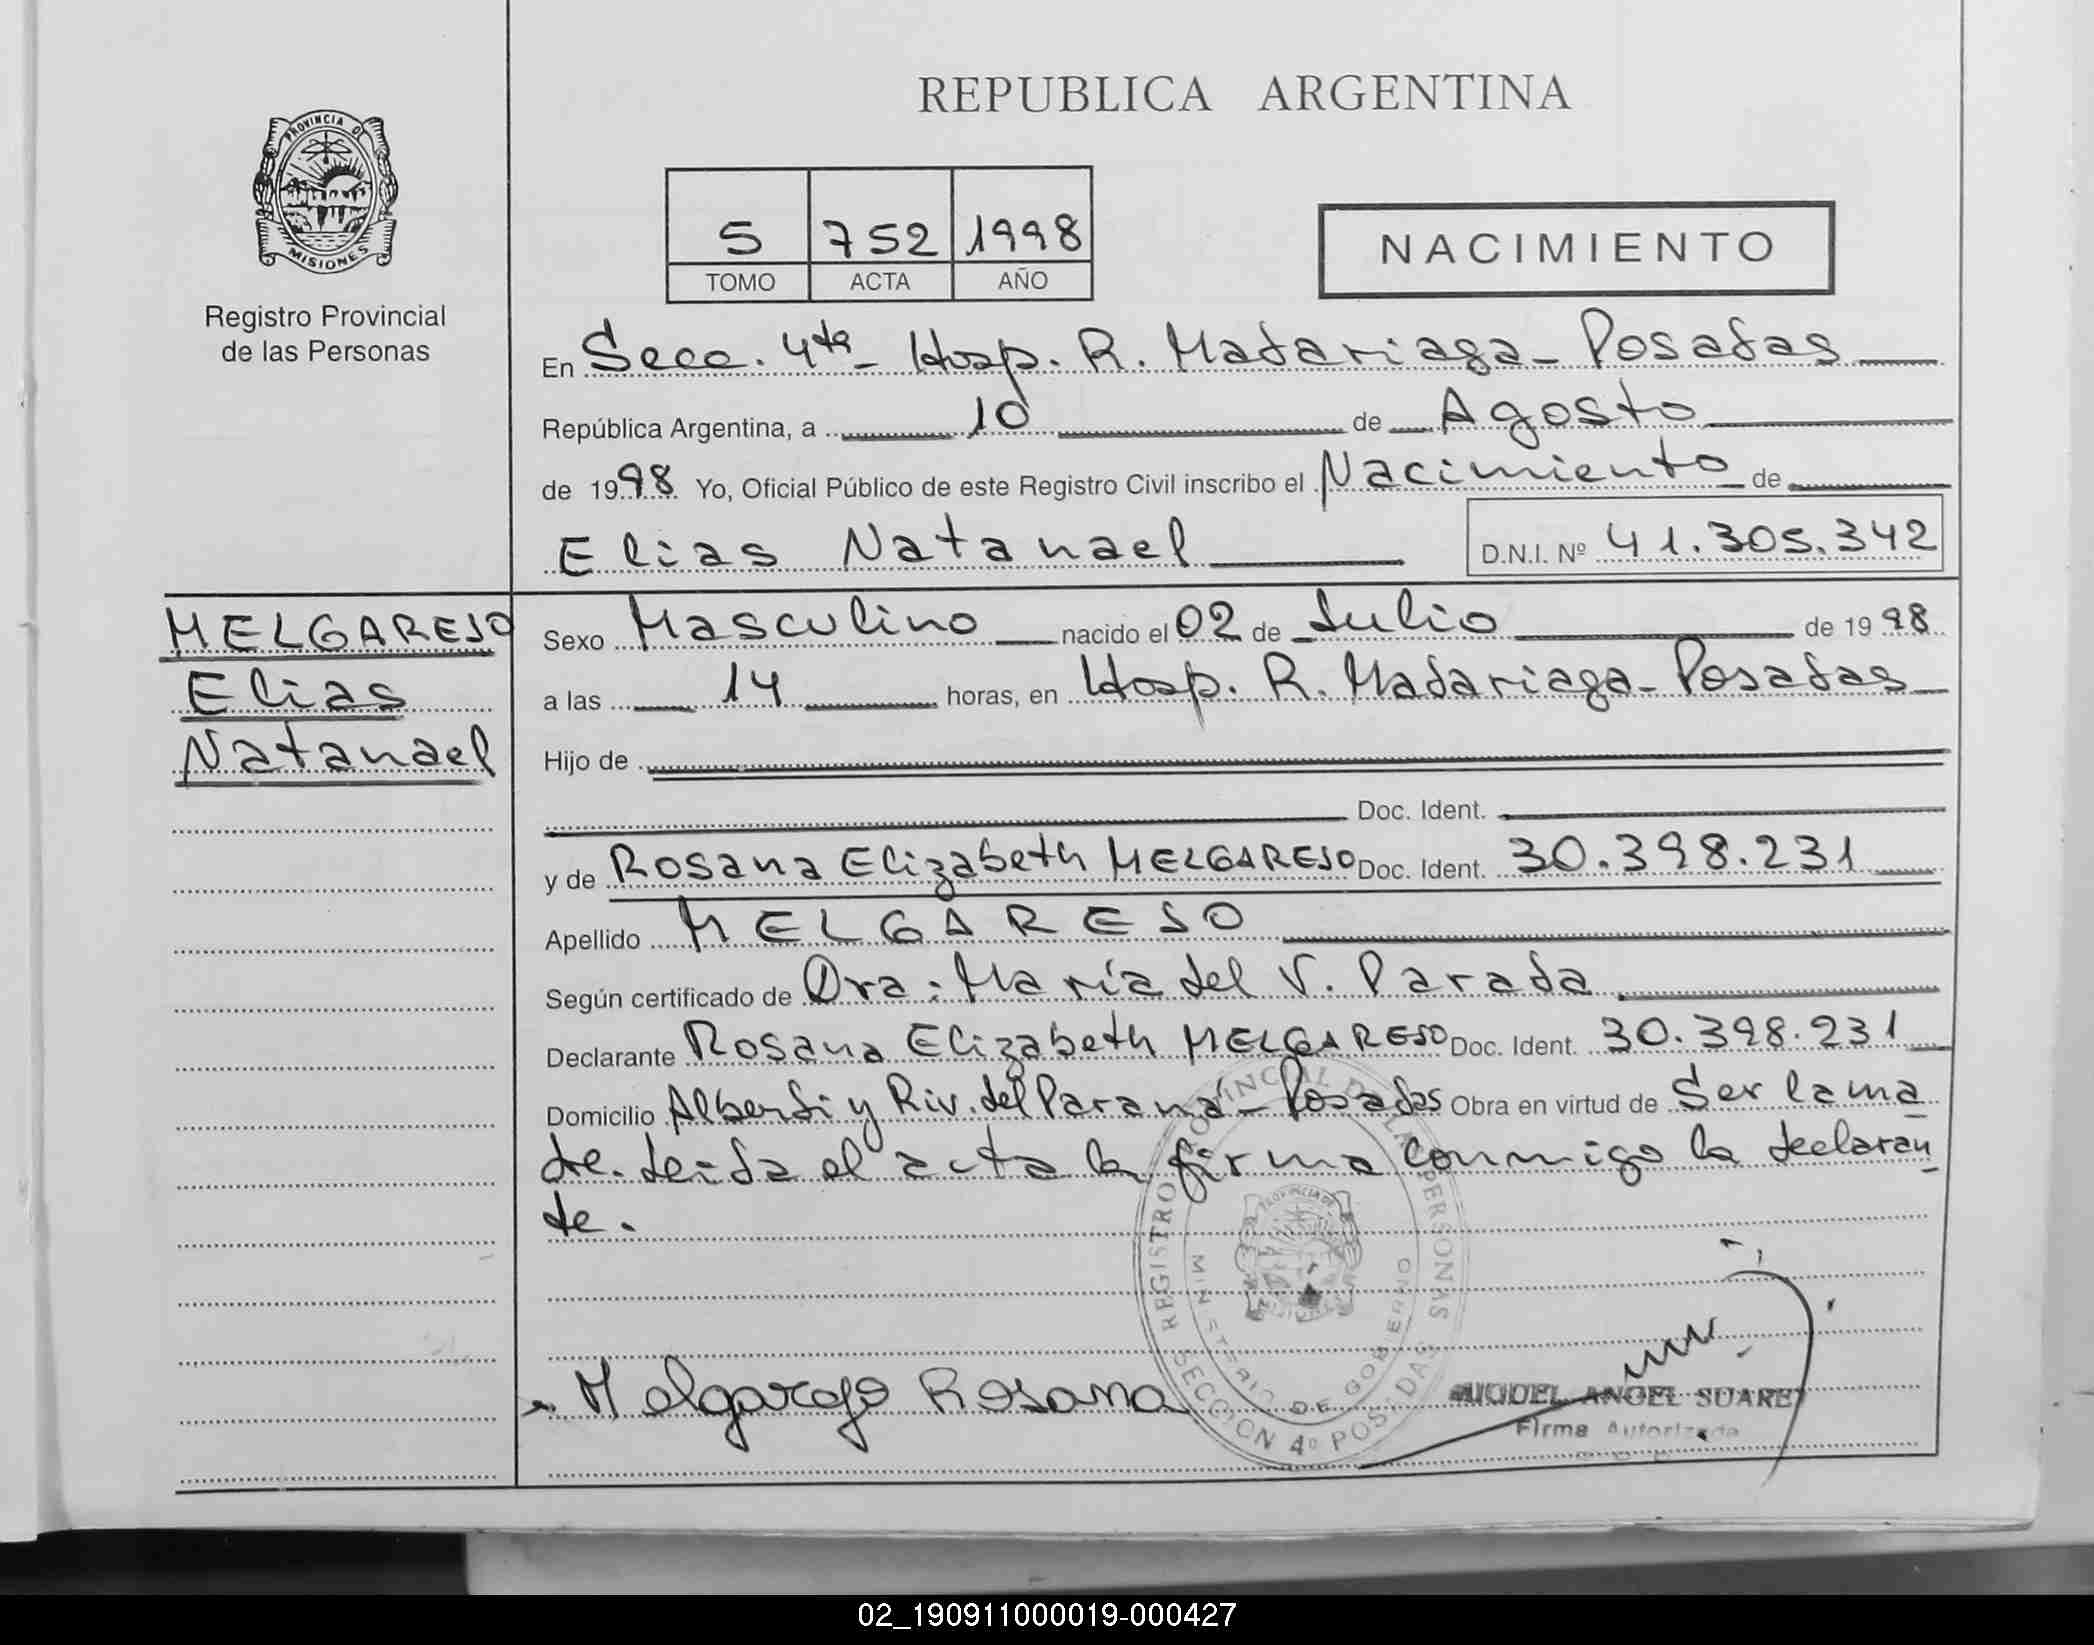 REPUBLICA ARGENTINA
PROVINCIA DE
MISIONES
Registro Provincial
de las Personas
5 752 1998
TOMO ACTA AÑO
NACIMIENTO
En Secc. 4ta - Hosp. R. Madariaga - Posadas
República Argentina, a 10 de Agosto
de 1998 Yo, Oficial Público de este Registro Civil inscribo el Nacimiento de
Elias Natanael D.N.I. Nº 41.305.342
MELGAREJO
Elias
Natanael
Sexo Masculino nacido el 02 de Julio de 1998
a las 14 horas, en Hosp. R. Madariaga - Posadas
Hijo de
Doc. Ident.
y de Rosana Elizabeth MELGAREJO Doc. Ident. 30.398.231
Apellido MELGAREJO
Según certificado de Dra: María del V. Parada
Declarante Rosana Elizabeth MELGAREJO Doc. Ident. 30.398.231
Domicilio Alberdi y Riv. del Paraná - Posadas Obra en virtud de Ser la ma
dre. Leida el acta la firma conmigo la declaran
te.
REGISTRO PROVINCIAL DE LAS PERSONAS
MINISTERIO DE GOBIERNO
SECCION 4º POSADAS
Melgarejo Rosana
MIGUEL ANGEL SUAREZ
Firma Autorizada
02_190911000019-000427